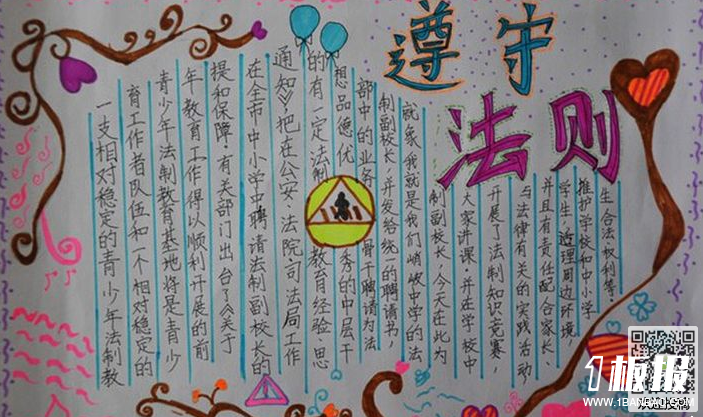 遵守
法则
一支相对稳定的青少年法制教
育工作者队伍和一个相对稳定的
青少年法制教育基地将是青少
年教育工作得以顺利开展的前
提和保障。有关部门出台了《关于
在全市中小学中聘请法制副校长的
通知》把在公安、法院、司法局工作
的有一定法制教育经验、思
想品德优秀的中层干
部中的业务骨干聘请为法
制副校长,并发给统一的聘请书,
就象我就是我们峭岐中学的法
制副校长,今天在此为
大家讲课。并在学校中
开展了法制知识竞赛,
与法律有关的实践活动
并且有责任配合家长
学生,理周边环境
护学校和中小学
生合法权利等。
1板报
WWW.1BANBAO.COM